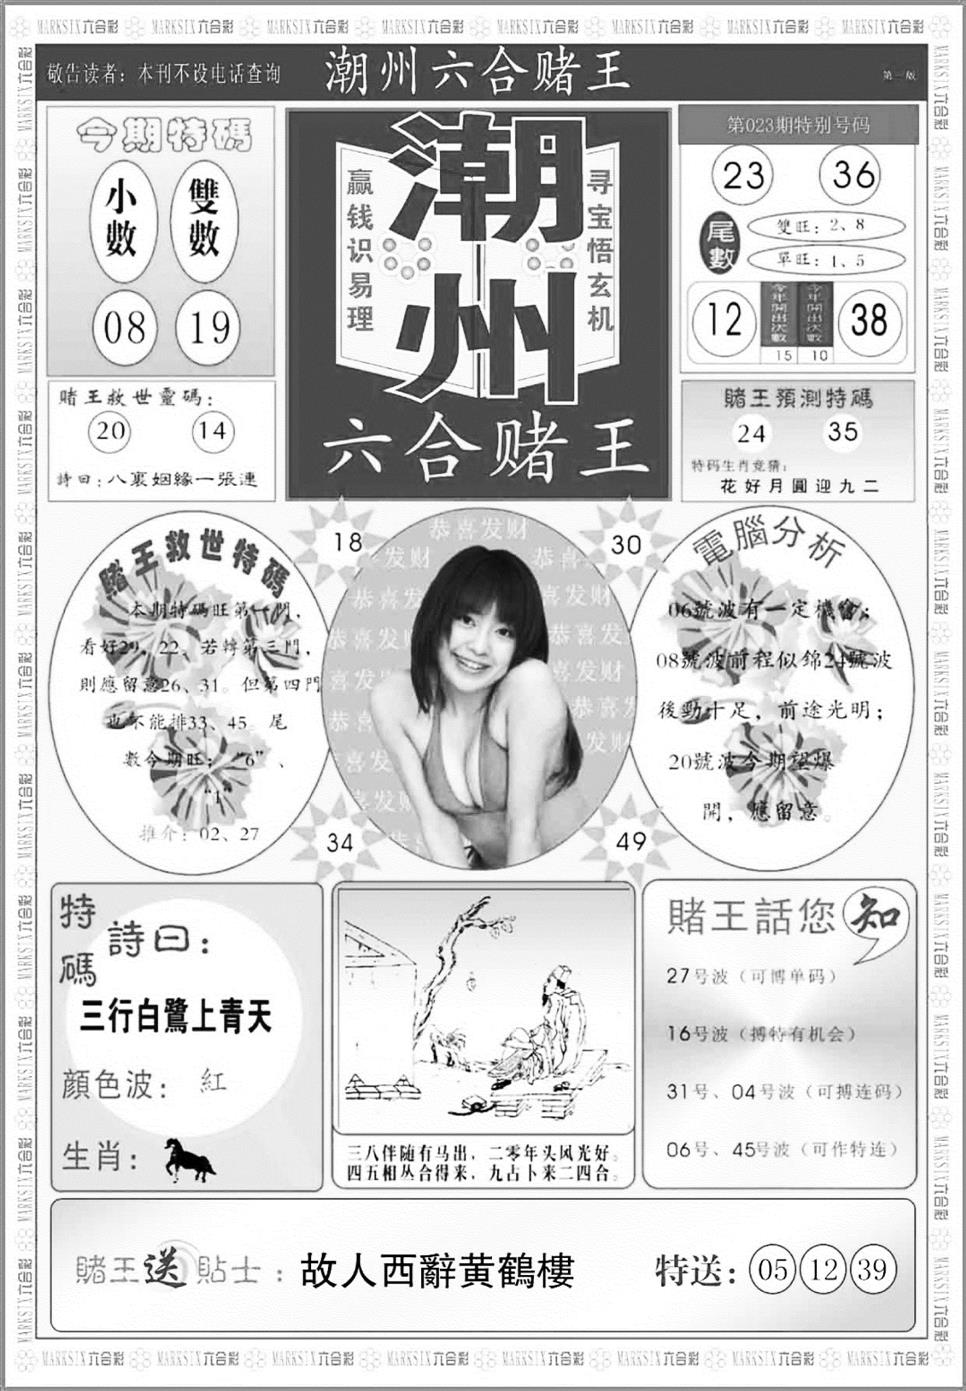 MARKSIX六合彩 MARKSIX六合彩 MARKSIX六合彩 MARKSIX六合彩 MARKSIX六合彩 MARKSIX六合彩 MARKSIX六合彩 MARKSIX六合彩
敬告读者：本刊不设电话查询
潮州六合赌王
第一版
今期特碼
小數
雙數
08 19
賭王救世靈碼：
20 14
詩曰：八裏姻緣一張連
赢钱识易理
潮州
寻宝悟玄机
六合赌王
第023期特别号码
23 36
尾數
雙旺：2、8
單旺：1、5
12
今年開出次數
15
今年開出次數
10
38
賭王預測特碼
24 35
特码生肖竞猜：
花好月圓迎九二
賭王救世特碼
本期特碼旺第一門，
看好29，22。若轉第三門，
則應留意26、31。但第四門
也不能排33、45。尾
數今期旺：“6”、
“1”
推介：02、27
18
30
34
49
恭喜发财
電腦分析
06號波有一定機會；
08號波前程似錦24號波
後勁十足，前途光明；
20號波今期望爆
開，應留意。
特碼
詩曰：
三行白鷺上青天
顔色波：紅
生肖：
三八伴随有马出，二零年头风光好。
四五相丛合得来，九占卜来二四合。
賭王話您知
27号波（可博单码）
16号波（搏特有机会）
31号、04号波（可搏连码）
06号、45号波（可作特连）
賭王送貼士：故人西辭黄鶴樓
特送：05 12 39
MARKSIX六合彩 MARKSIX六合彩 MARKSIX六合彩 MARKSIX六合彩 MARKSIX六合彩 MARKSIX六合彩 MARKSIX六合彩 MARKSIX六合彩